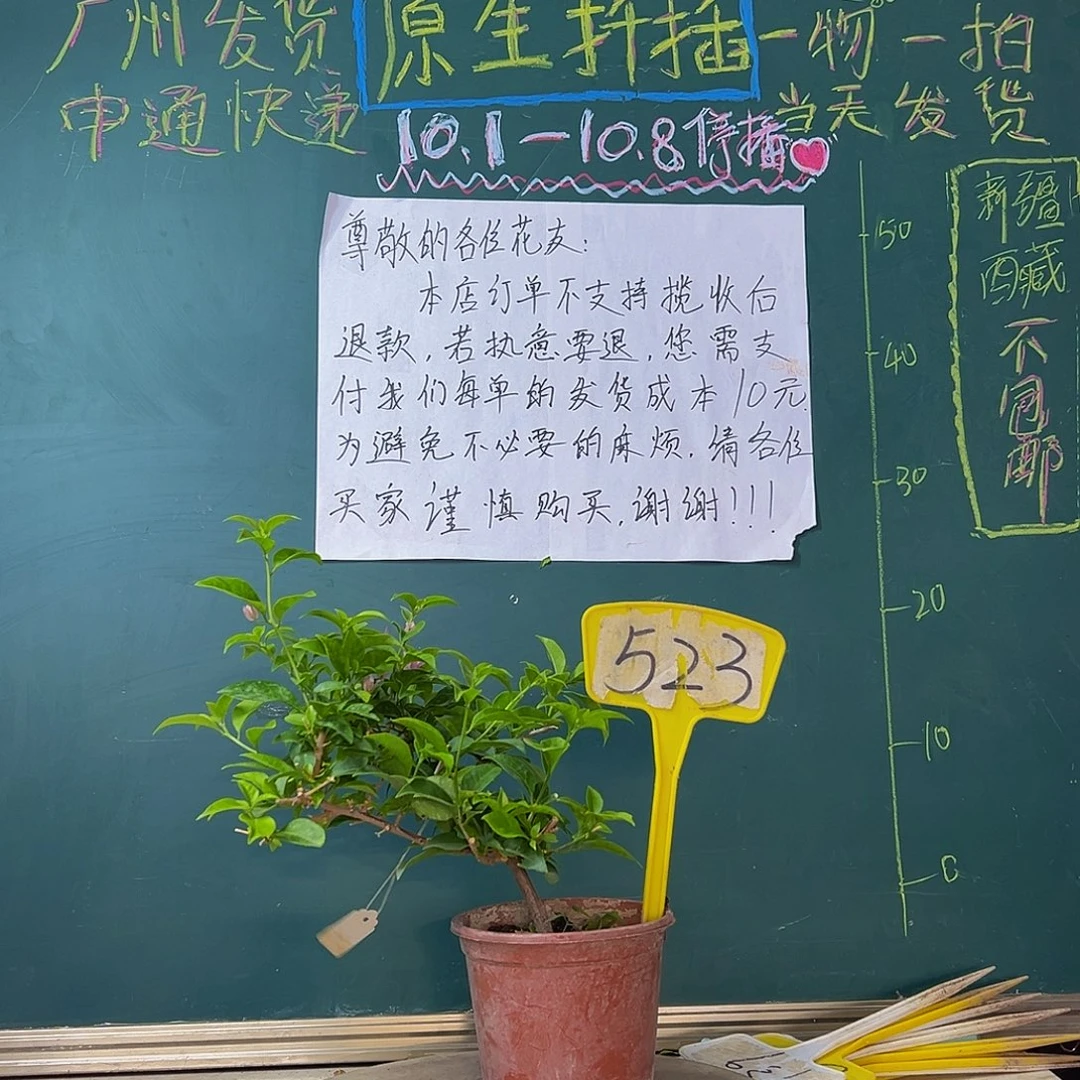 广州发货 原生扦插 一物一拍
申通快递 当天发货
10.1—10.8停播
尊敬的各位花友:
本店订单不支持揽收后
退款,若执意要退,您需支
付我们每单的发货成本10元
为避免不必要的麻烦,请各位
买家谨慎购买,谢谢!!!
新疆
西藏
不
包
邮
50
40
30
20
10
0
523